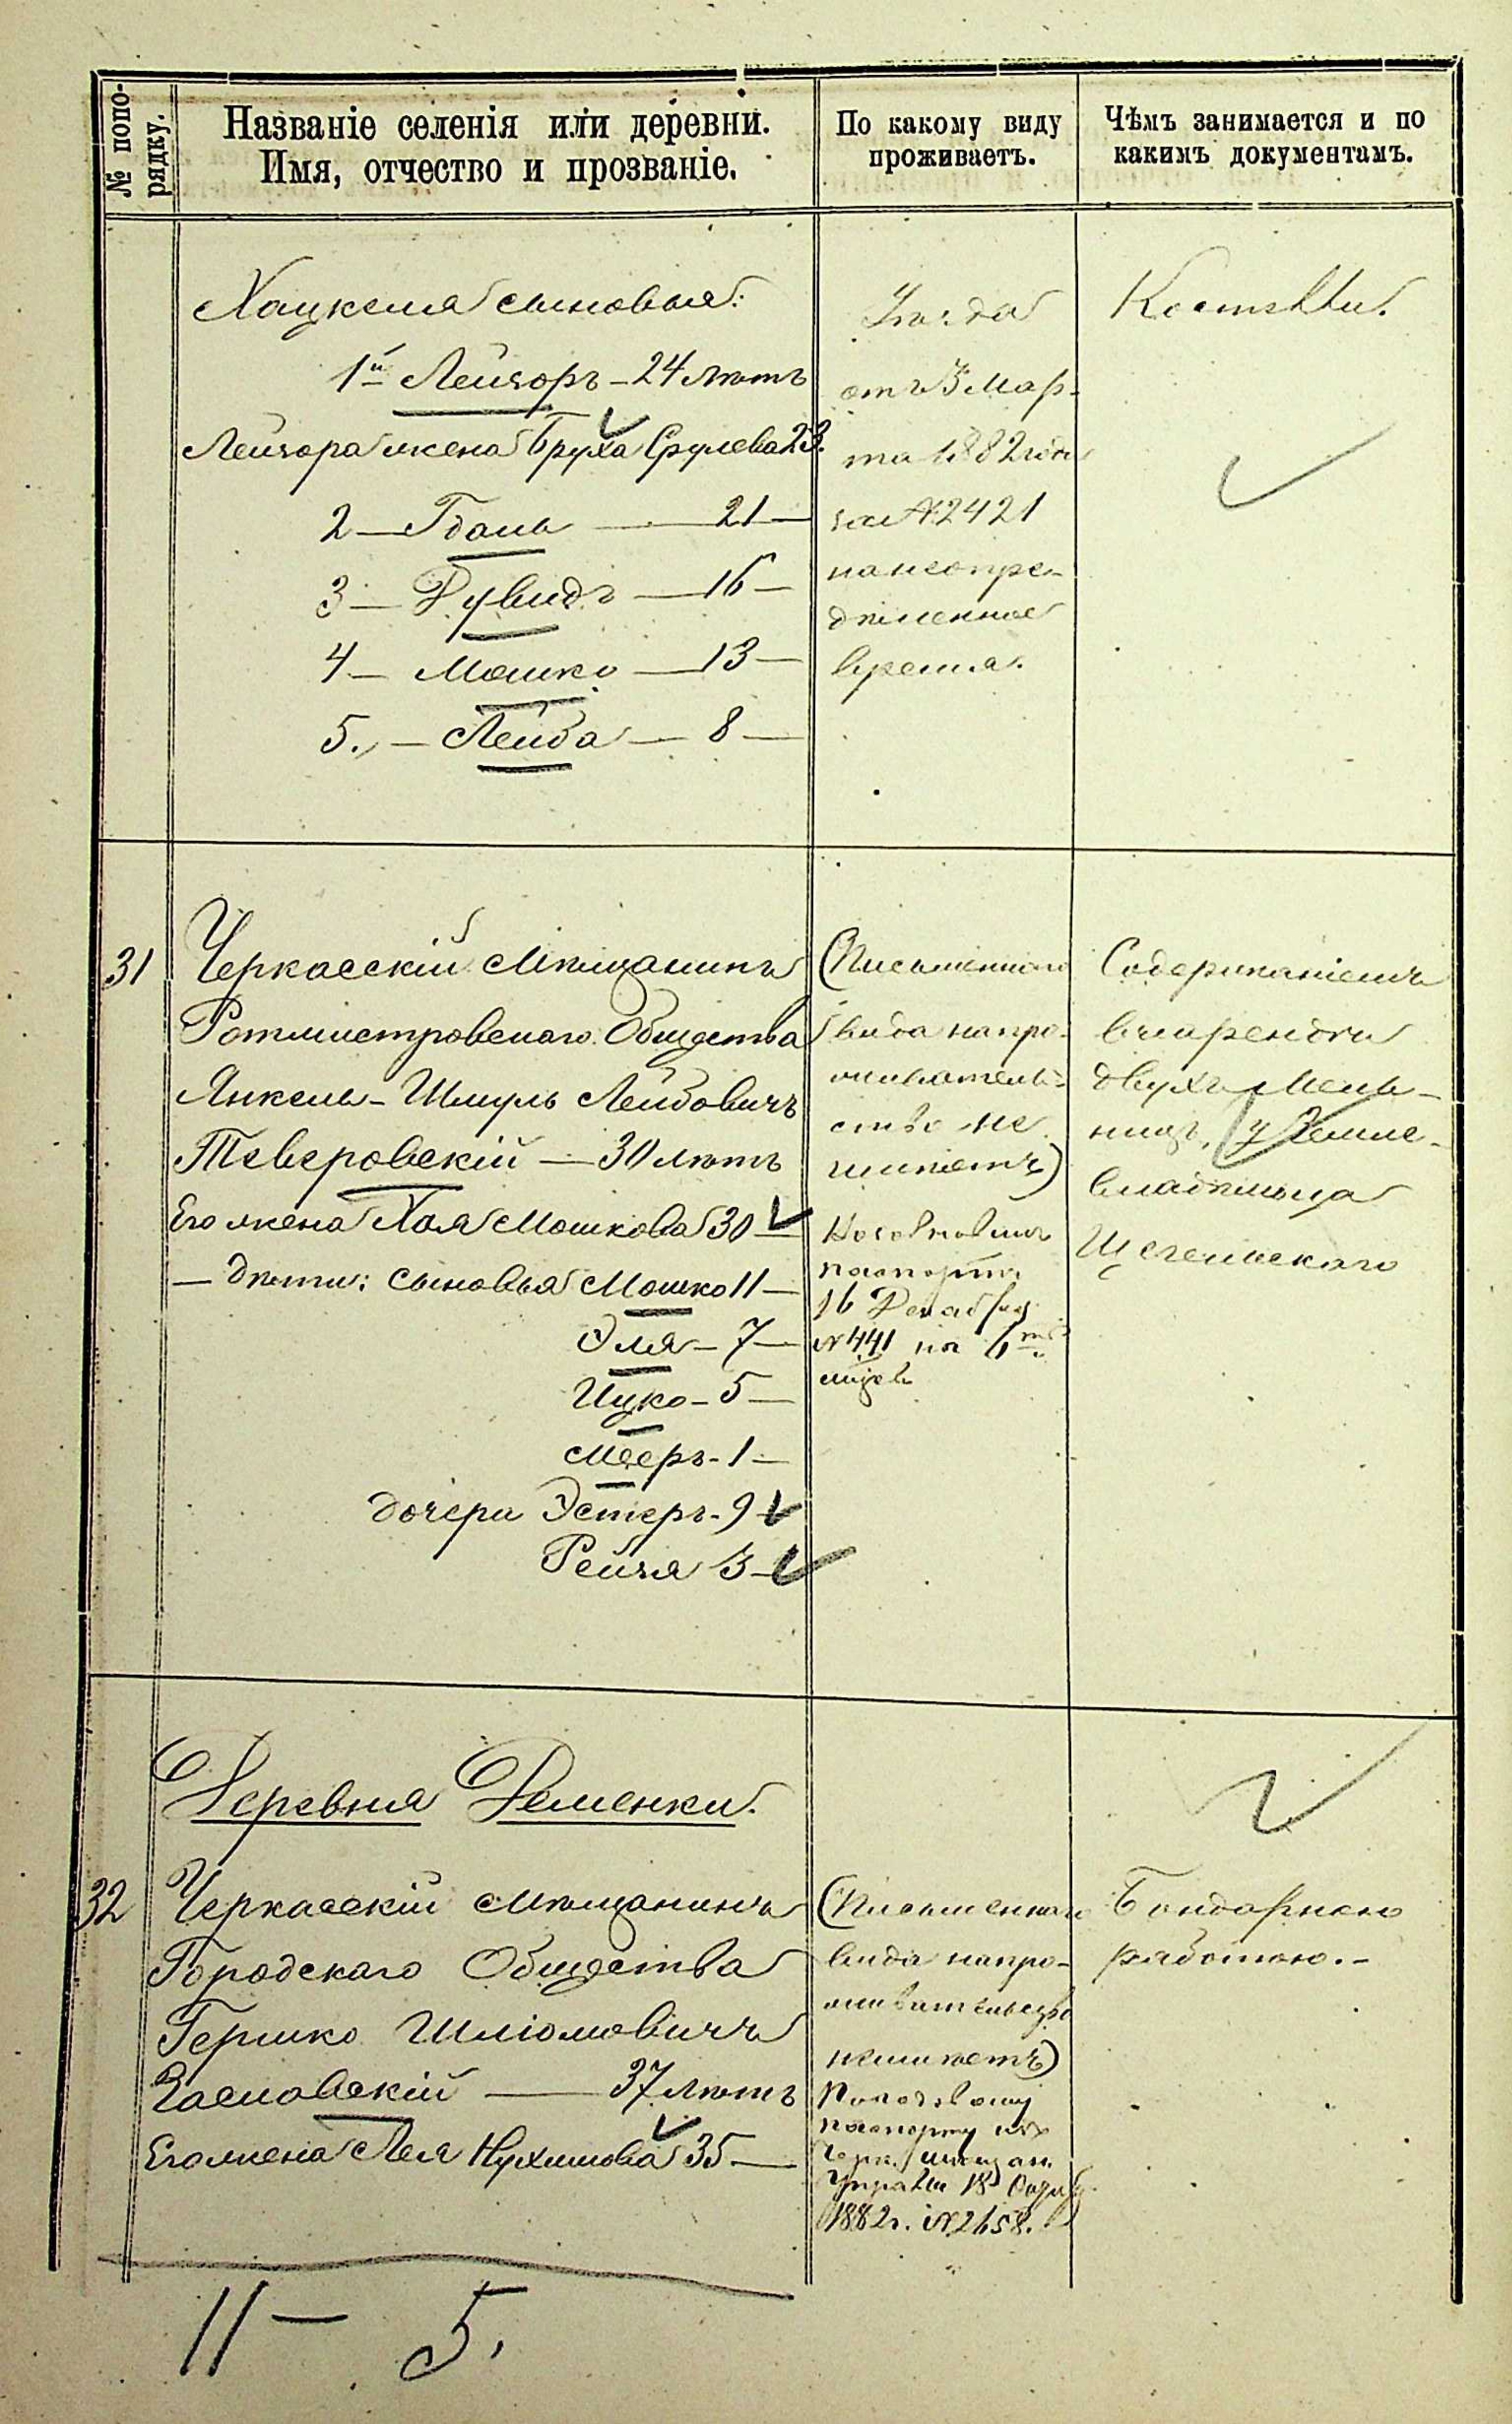 № попо-
рядку.
Названіе селенія или деревни.
Имя, отчество и прозваніе.
По какому виду
проживаетъ.
Чѣмъ занимается и по
какимъ документамъ.
Хацкеля сыновья:
1й Лейзоръ - 24 лѣтъ
Лейзора жена Бруха Срулева 23.
2 — Гдаль — 21 —
3 — Дувидъ — 16 —
4 — Мошко — 13 —
5. — Лейба — 8 —
отъ 3 Мар-
та 1882 года
за № 2421
на неопре-
дѣленное
время.
31
Черкасскій Мѣщанинъ
Ротмистровскаго Общества
Янкель-Шмуль Лейбовичъ
Тверовскій — 30 лѣтъ
Его жена Хая Мошкова 30 —
— дѣти: сыновья Мошко 11 —
Эля - 7 —
Ицко - 5 —
Мееръ - 1 —
дочери Эстеръ - 9
Рейзя 3 —
(Письменнаго
вида на про-
жыватель-
ство не
имѣетъ)
паспорту
16 Декабря
№ 441 на 6
Содержаніемъ
въ арендѣ
двухъ мель-
ницъ, у Земле-
владѣльца
Щегельскаго
Деревня Деменки.
32
Черкасскій мѣщанинъ
Городскаго Общества
Гершко Шліомовичъ
Заславскій — 37 лѣтъ
Его жена Лея Нухимова 35 —
(Письменнаго
вида на про-
неимѣетъ)
По годовому
паспорту изъ
Черк. мѣщан.
Управы 18
1882 г. № 2658.
Бондарною
работою. -
11 — 5.